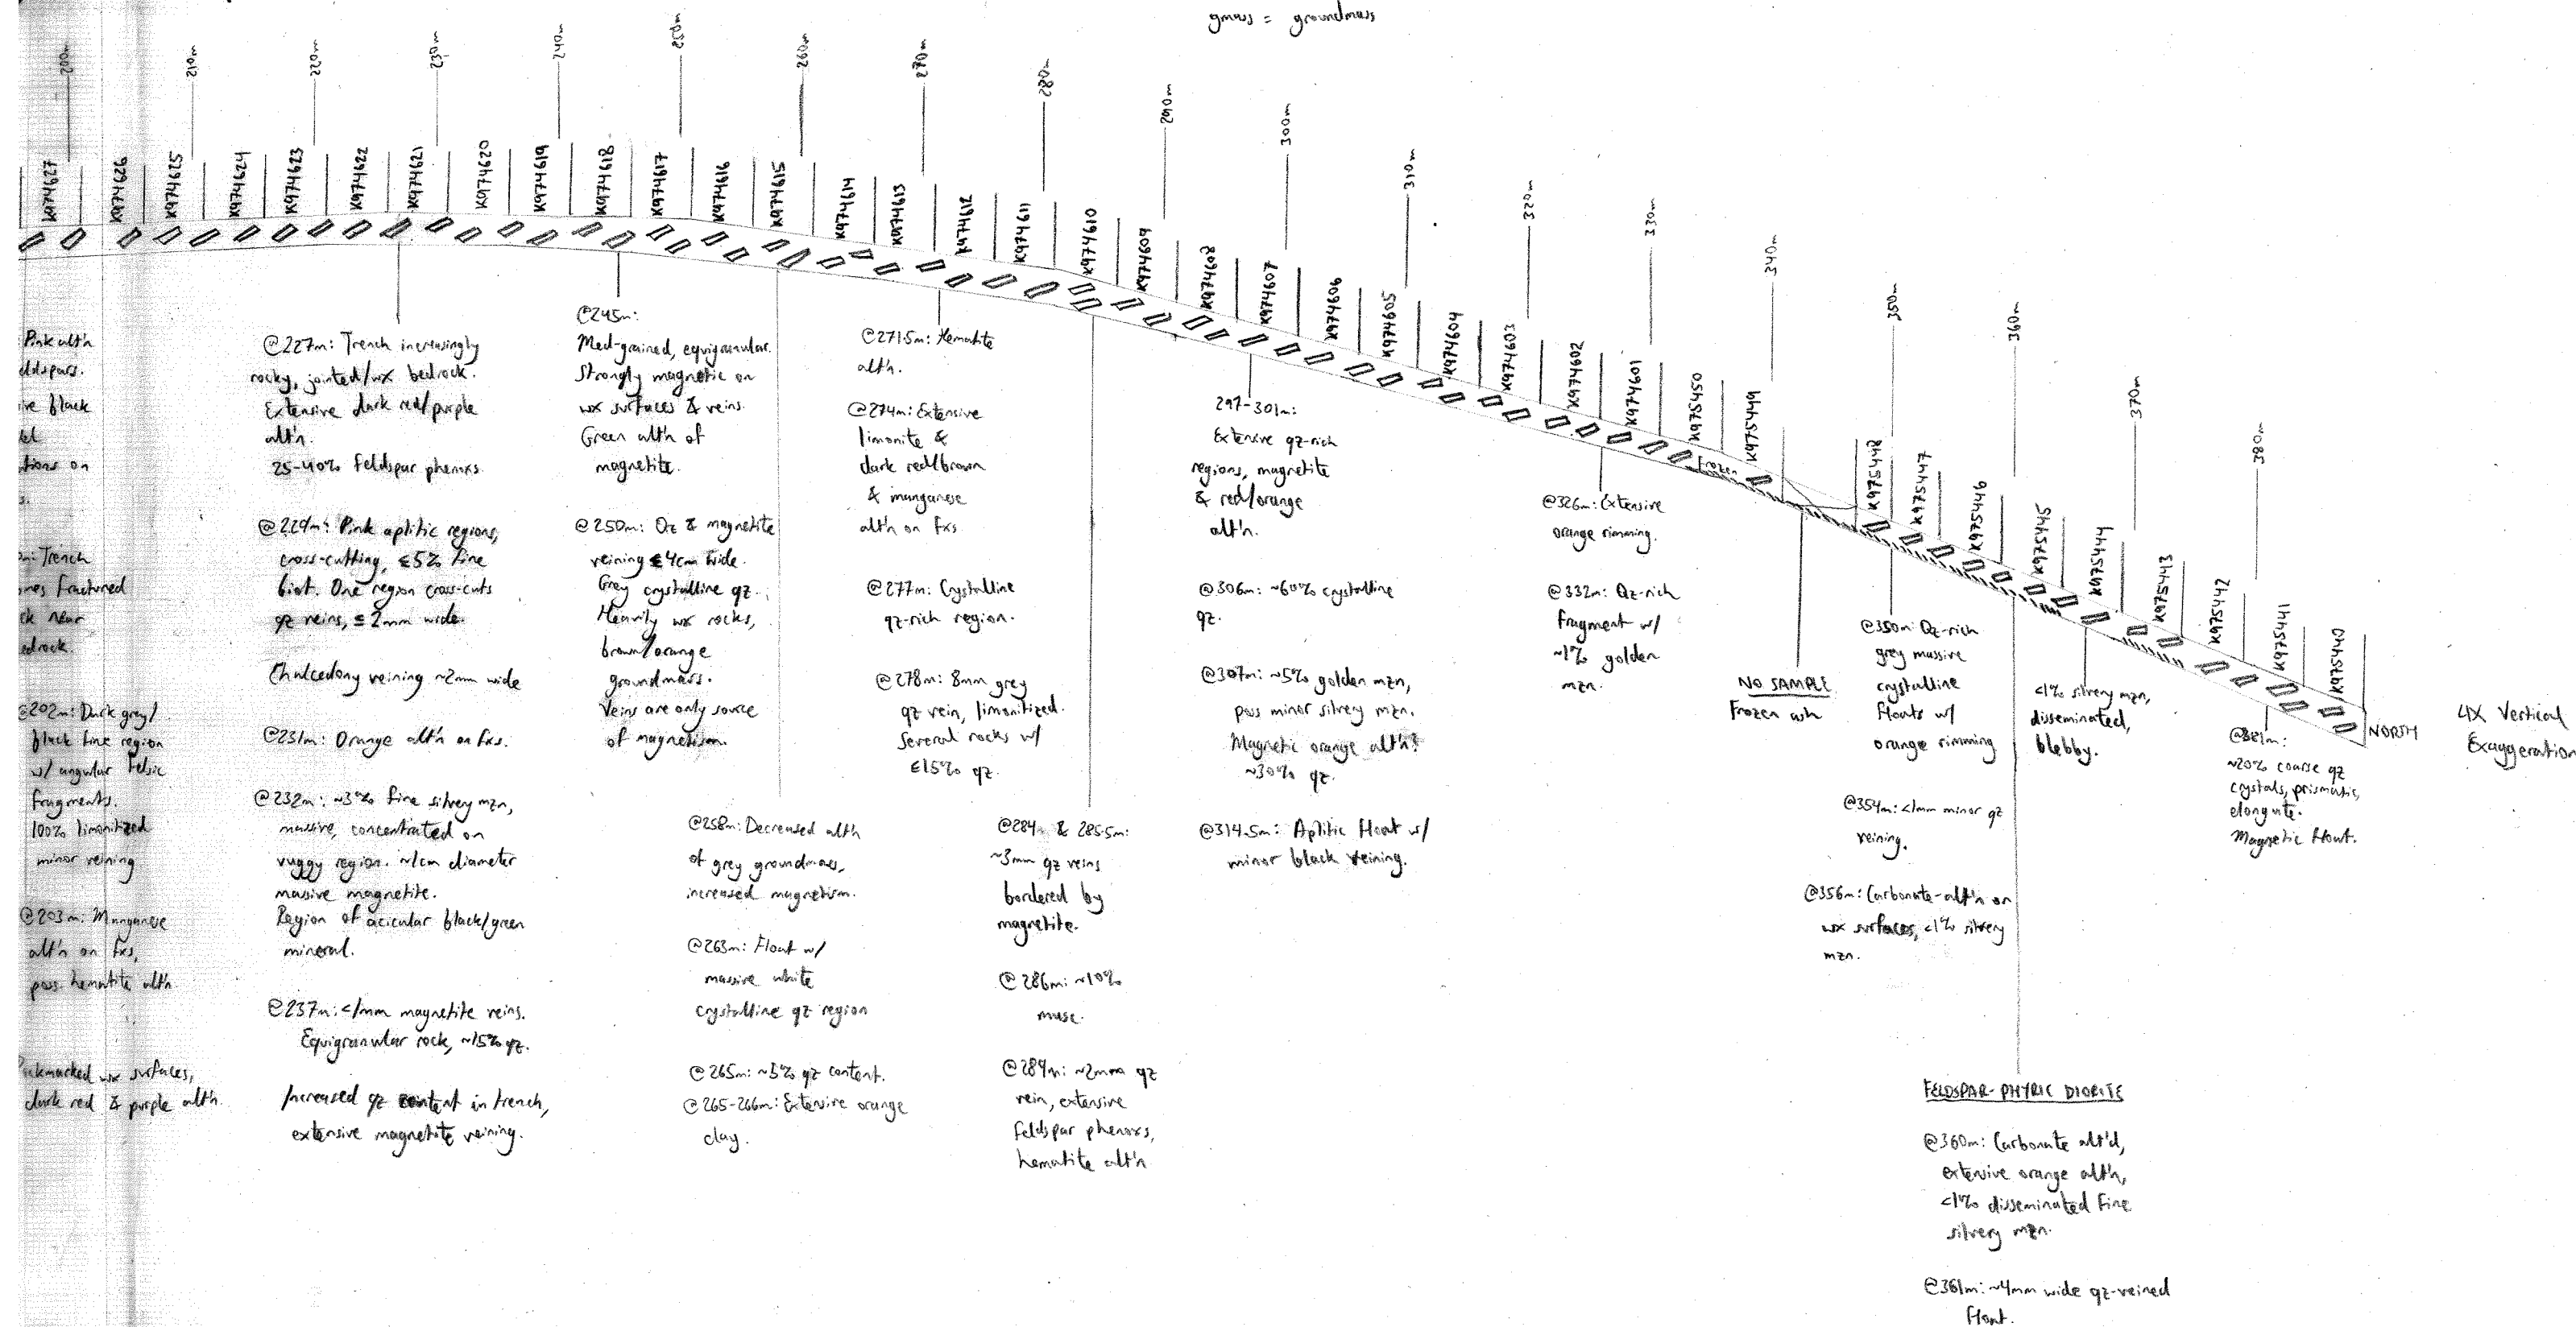 gmass = groundmass
200m
210m
220m
230m
240m
250m
260m
270m
280m
290m
300m
310m
320m
330m
340m
350m
360m
370m
380m
K974627
K974626
K974625
K974624
K974623
K974622
K974621
K974620
K974619
K974618
K974617
K974616
K974615
K974614
K974613
K974612
K974611
K974610
K974609
K974608
K974607
K974606
K974605
K974604
K974603
K974602
K974601
K975450
K975449
K975448
K975447
K975446
K975445
K975444
K975443
K975442
K975441
K975440
Frozen
NORTH
4X Vertical
Exaggeration
Pink alt'n
black
on
Trench
fractured
near
@202m: Dark grey/
black fine region
w/ angular felsic
fragments.
100% limonitized
minor veining
@203m: Manganese
alt'n on fxs,
poss. hematite alt'n
wx surfaces,
dark red & purple alt'n.
@227m: Trench increasingly
rocky, jointed/wx bedrock.
Extensive dark red/purple
alt'n.
25-40% feldspar phenoxs.
@229m: Pink aplitic regions,
cross-cutting, ≤5% fine
biot. One region cross-cuts
qz veins, ≤2mm wide.
Chalcedony veining ~2mm wide
@231m: Orange alt'n on fxs.
@232m: ~3% fine silvery mzn,
massive, concentrated on
vuggy region. ~1cm diameter
massive magnetite.
Region of acicular black/green
mineral.
@237m: <1mm magnetite veins.
Equigranular rock, ~15% qz.
Increased qz content in trench,
extensive magnetite veining.
@245m:
Med-grained, equigranular.
Strongly magnetic on
wx surfaces & veins.
Green alt'n of
magnetite.
@250m: Qz & magnetite
veining ≤4cm wide.
Grey crystalline qz.
Heavily wx rocks,
brown/orange
groundmass.
Veins are only source
of magnetism.
@258m: Decreased alt'n
of grey groundmass,
increased magnetism.
@263m: Float w/
massive white
crystalline qz region
@265m: ~5% qz content.
@265-266m: Extensive orange
clay.
@271.5m: Hematite
alt'n.
@274m: Extensive
limonite &
dark red/brown
& manganese
alt'n on fxs
@277m: Crystalline
qz-rich region.
@278m: 8mm grey
qz vein, limonitized.
Several rocks w/
≤15% qz.
@284 & 285.5m:
~3mm qz veins
bordered by
magnetite.
@286m: ~10%
musc.
@289m: ~2mm qz
vein, extensive
feldspar phenoxs,
hematite alt'n
297-301m:
Extensive qz-rich
regions, magnetite
& red/orange
alt'n.
@306m: ~60% crystalline
qz.
@307m: ~5% golden mzn,
poss minor silvery mzn.
Magnetic orange alt'n?
~30% qz.
@314.5m: Aplitic float w/
minor black veining.
@326m: Extensive
orange rimming.
@332m: Qz-rich
fragment w/
~1% golden
mzn.
NO SAMPLE
Frozen ash
@350m: Qz-rich
grey massive
crystalline
floats w/
orange rimming
@354m: <1mm minor qz
veining.
@356m: Carbonate-alt'n on
wx surfaces, <1% silvery
mzn.
FELDSPAR-PHYRIC DIORITE
@360m: Carbonate alt'd,
extensive orange alt'n,
<1% disseminated fine
silvery mzn.
@361m: ~4mm wide qz-veined
float.
<1% silvery mzn,
disseminated,
blebby.
@381m:
~20% coarse qz
crystals, prismatic,
elongate.
Magnetic float.